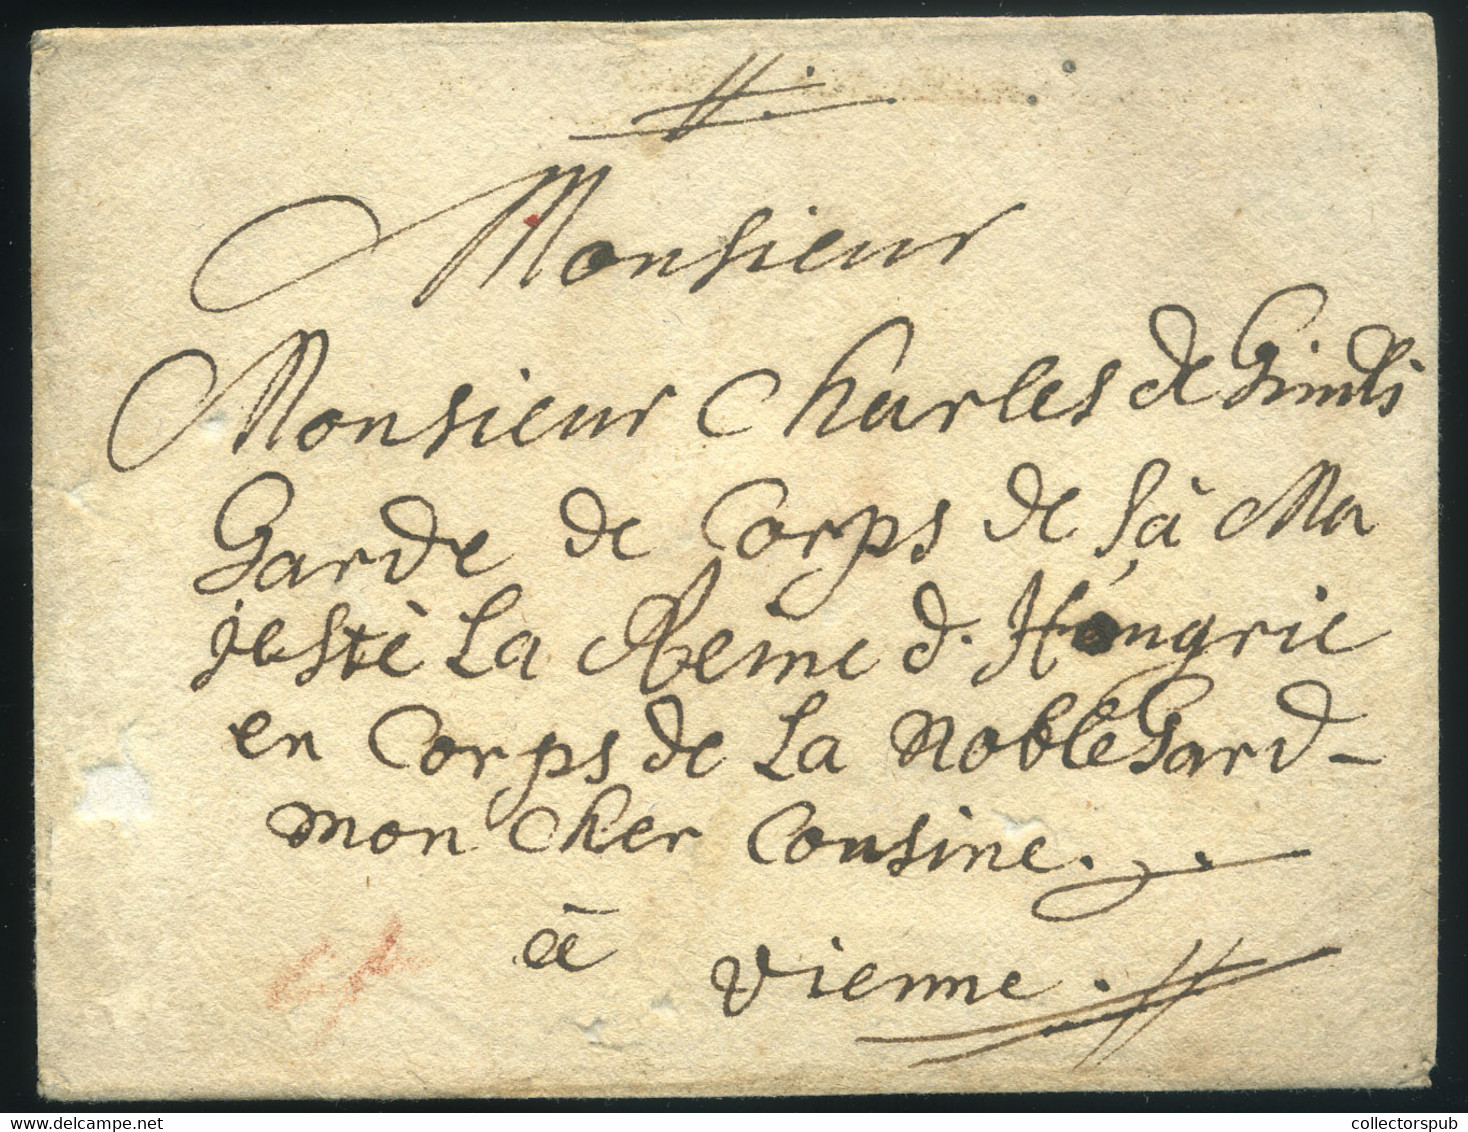 Monsieur
Monsieur Charles de
Garde de Corps de Sà Ma
jestè La Reine d'Hongrie
en Corps de La Noble Gard-
mon Cher Cousine.
à
Vienne.
collectorspub